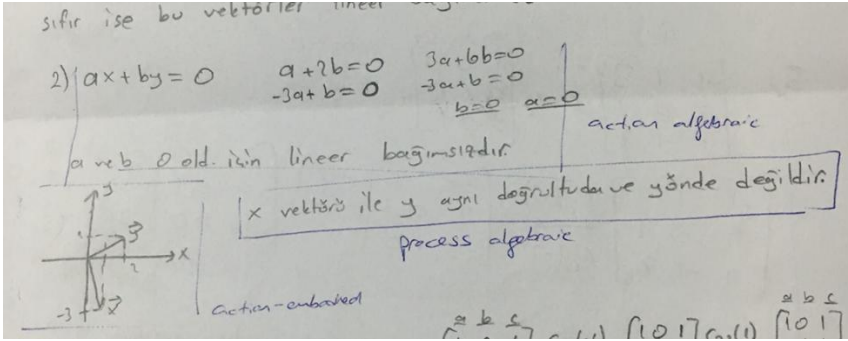 sıfır ise bu vektörler lineer
2) ax + by = 0
a + 2b = 0
-3a + b = 0
3a + 6b = 0
-3a + b = 0
b = 0 a = 0
action algebraic
a ve b 0 old. için lineer bağımsızdır.
x vektörü ile y aynı doğrultuda ve yönde değildir.
process algebraic
y
1
y
x
2
-3
x
action-embodied
a b c
a b c
[1 0 1]
[1 0 1]